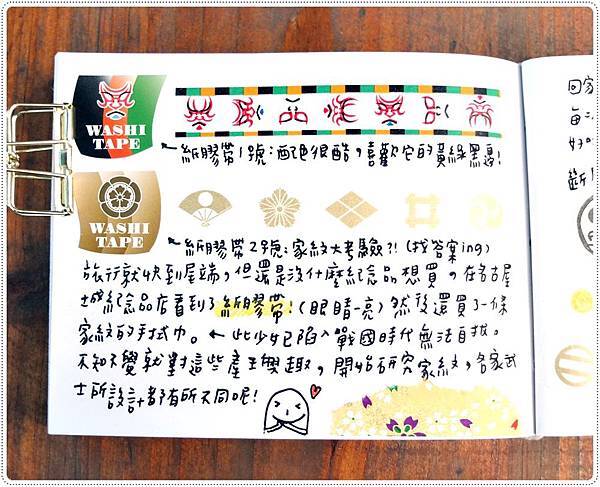 WASHI
TAPE
←紙膠帶1號:配色很酷,喜歡它的黃綠黑邊!
WASHI
TAPE
←紙膠帶2號:家紋大考驗?!(找答案ing)
旅行就快到尾端,但還是沒什麼紀念品想買。在名古屋
城紀念品店看到了紙膠帶!(眼睛一亮)然後還買了一條
家紋的手拭巾。←此少女已陷入戰國時代無法自拔。
不知不覺就對這些產生興趣,開始研究家紋,各家武
士所設計都有所不同呢!
回家
每
好
斷